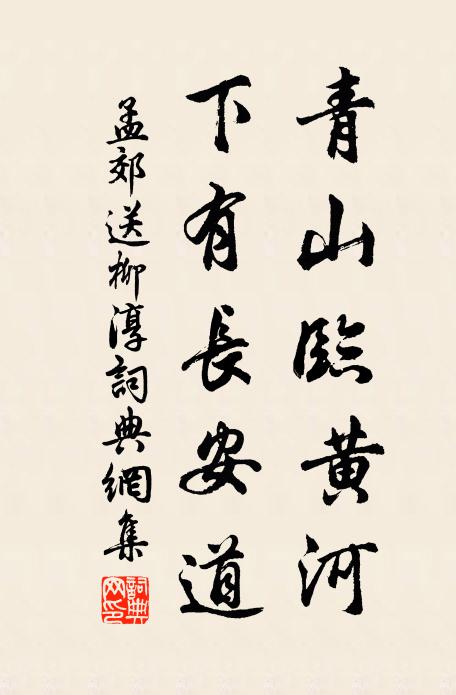 青山臨黄河
下有長安道
孟郊送柳淳詞典網集
詞典
网印